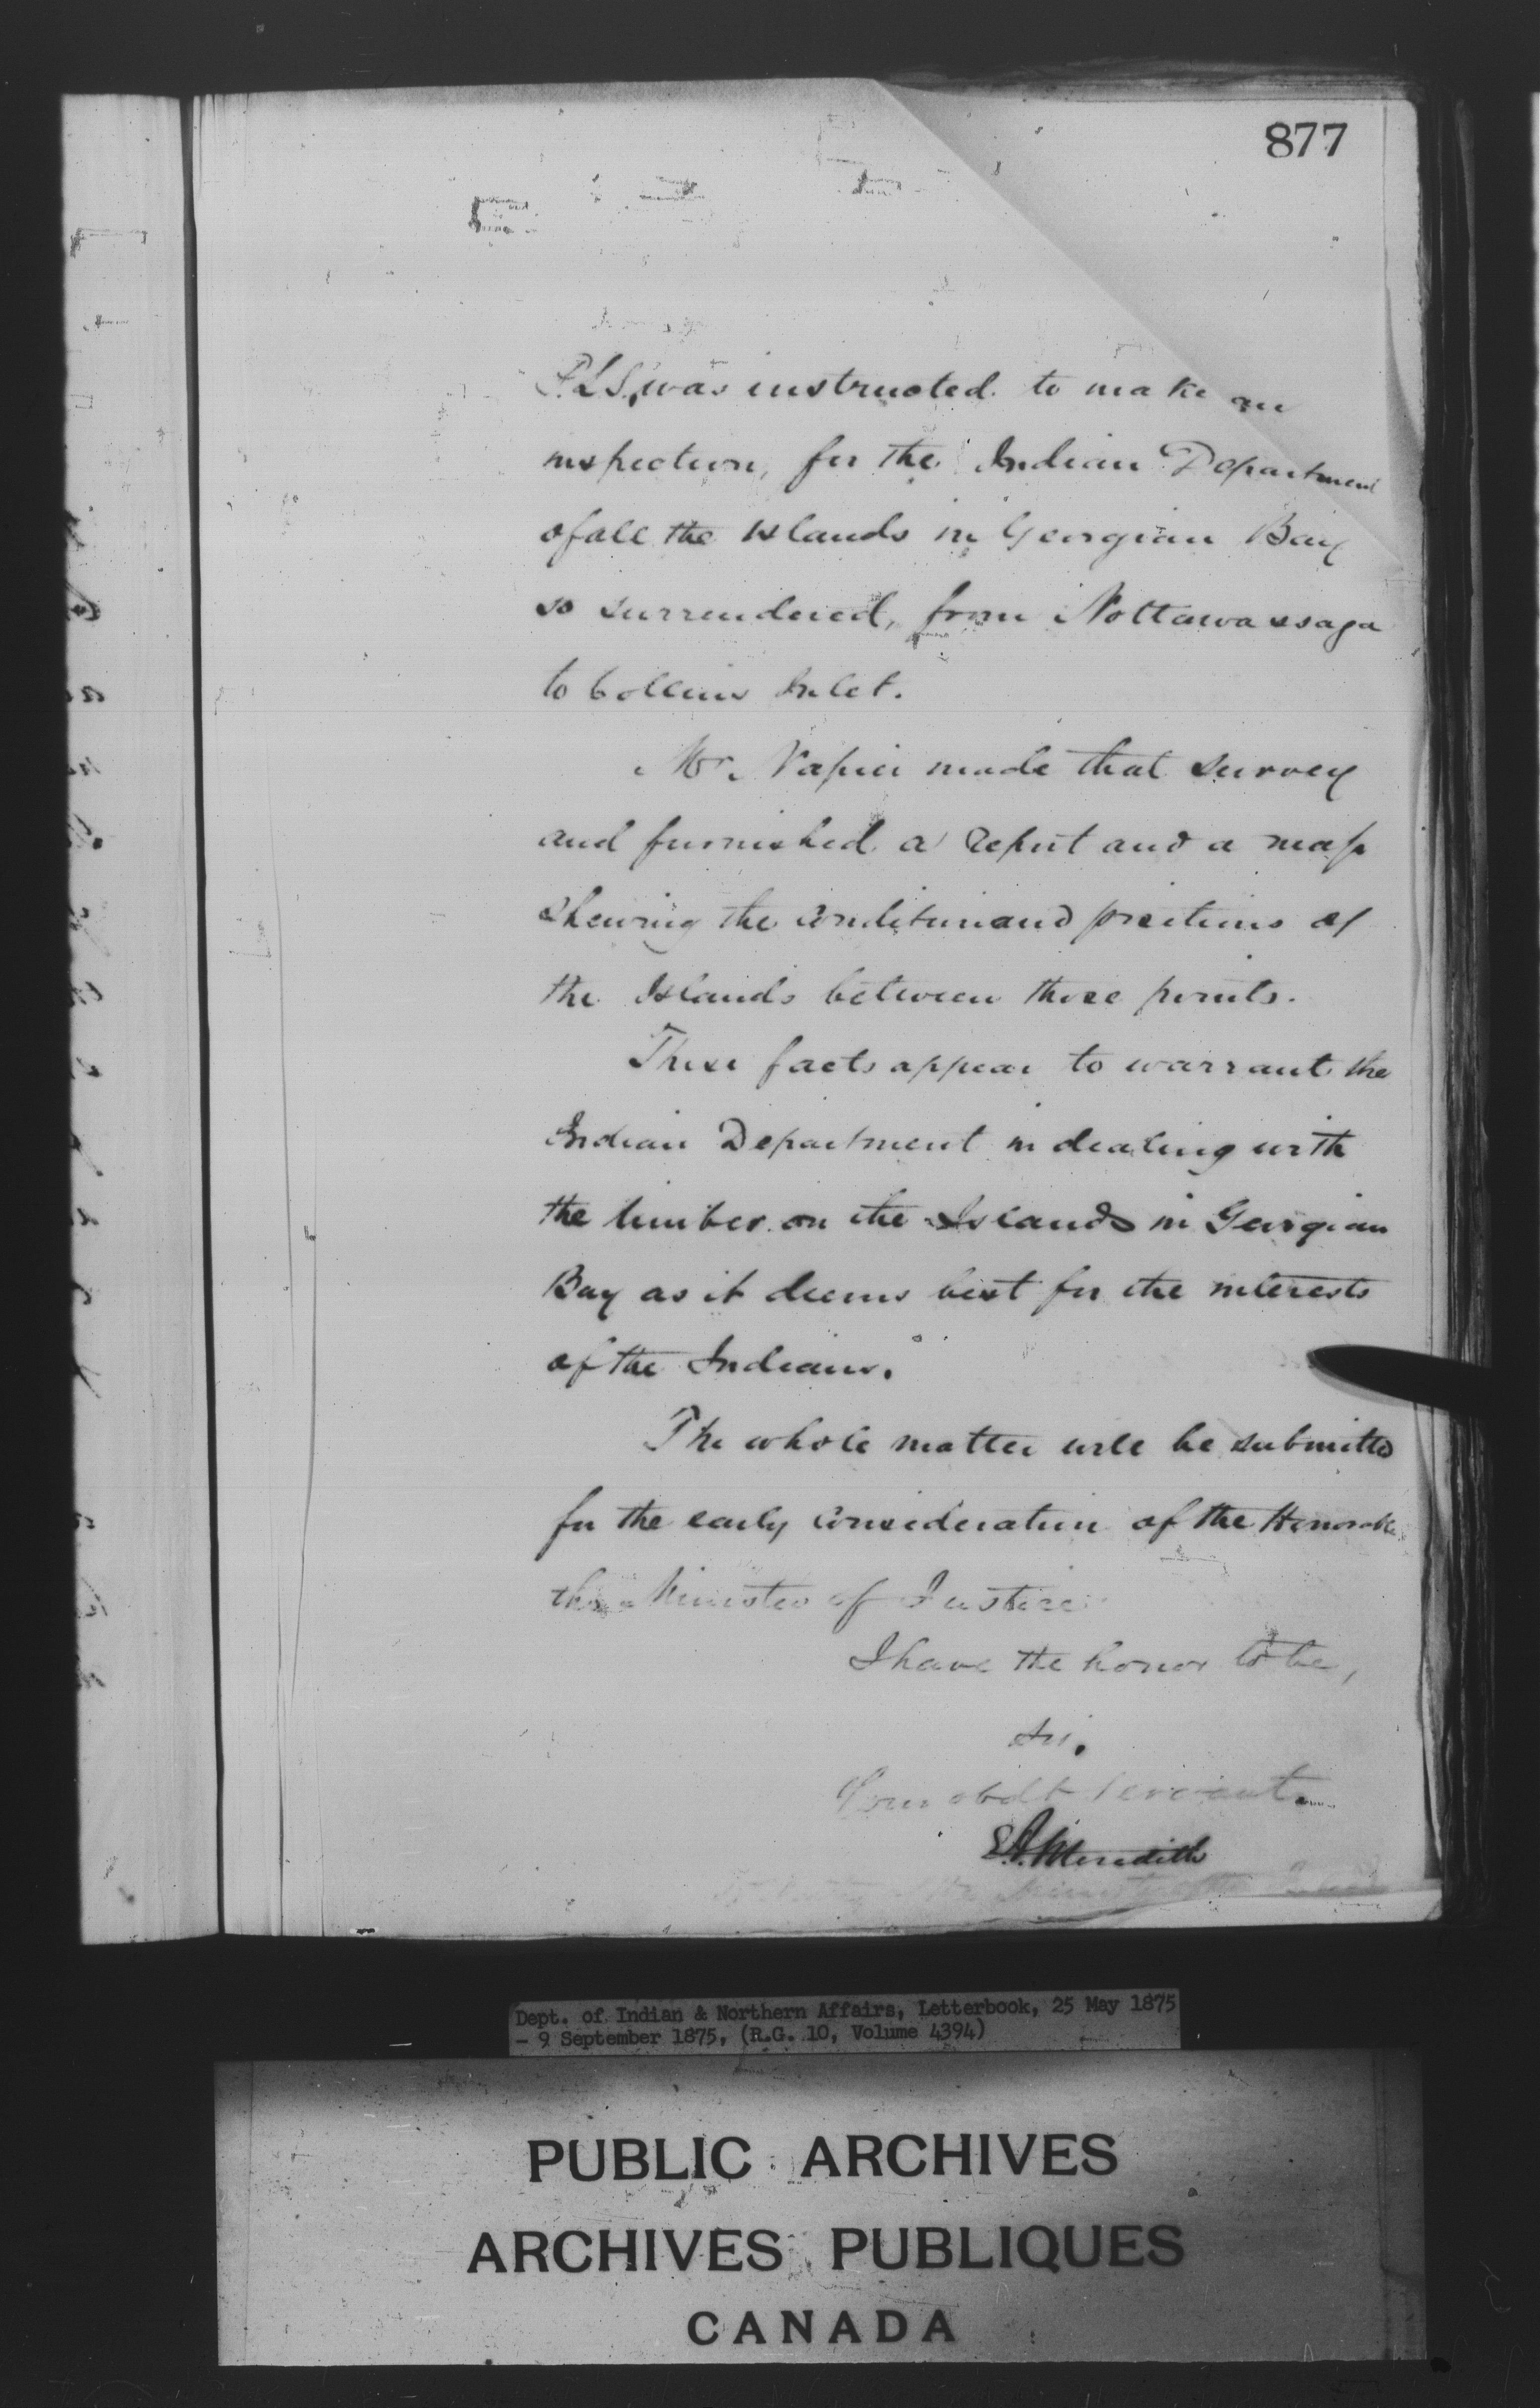 877
P.L.S. was instructed to make an
inspection, for the Indian Department
of all the Islands in Georgian Bay
so surrendered, from Nottawassaga
to Collins Inlet.
Mr. Napier made that survey
and furnished a Report and a map
shewing the condition and positions of
the Islands between those points.
These facts appear to warrant the
Indian Department in dealing with
the timber on the Islands in Georgian
Bay as it deems best for the interests
of the Indians.
The whole matter will be submitted
for the early consideration of the Honorable
the Minister of Justice.
I have the honor to be,
Sir,
Your obdt Servant.
E.A. Meredith
Dept. of Indian & Northern Affairs, Letterbook, 25 May 1875
- 9 September 1875, (R.G. 10, Volume 4394)
PUBLIC ARCHIVES
ARCHIVES PUBLIQUES
CANADA